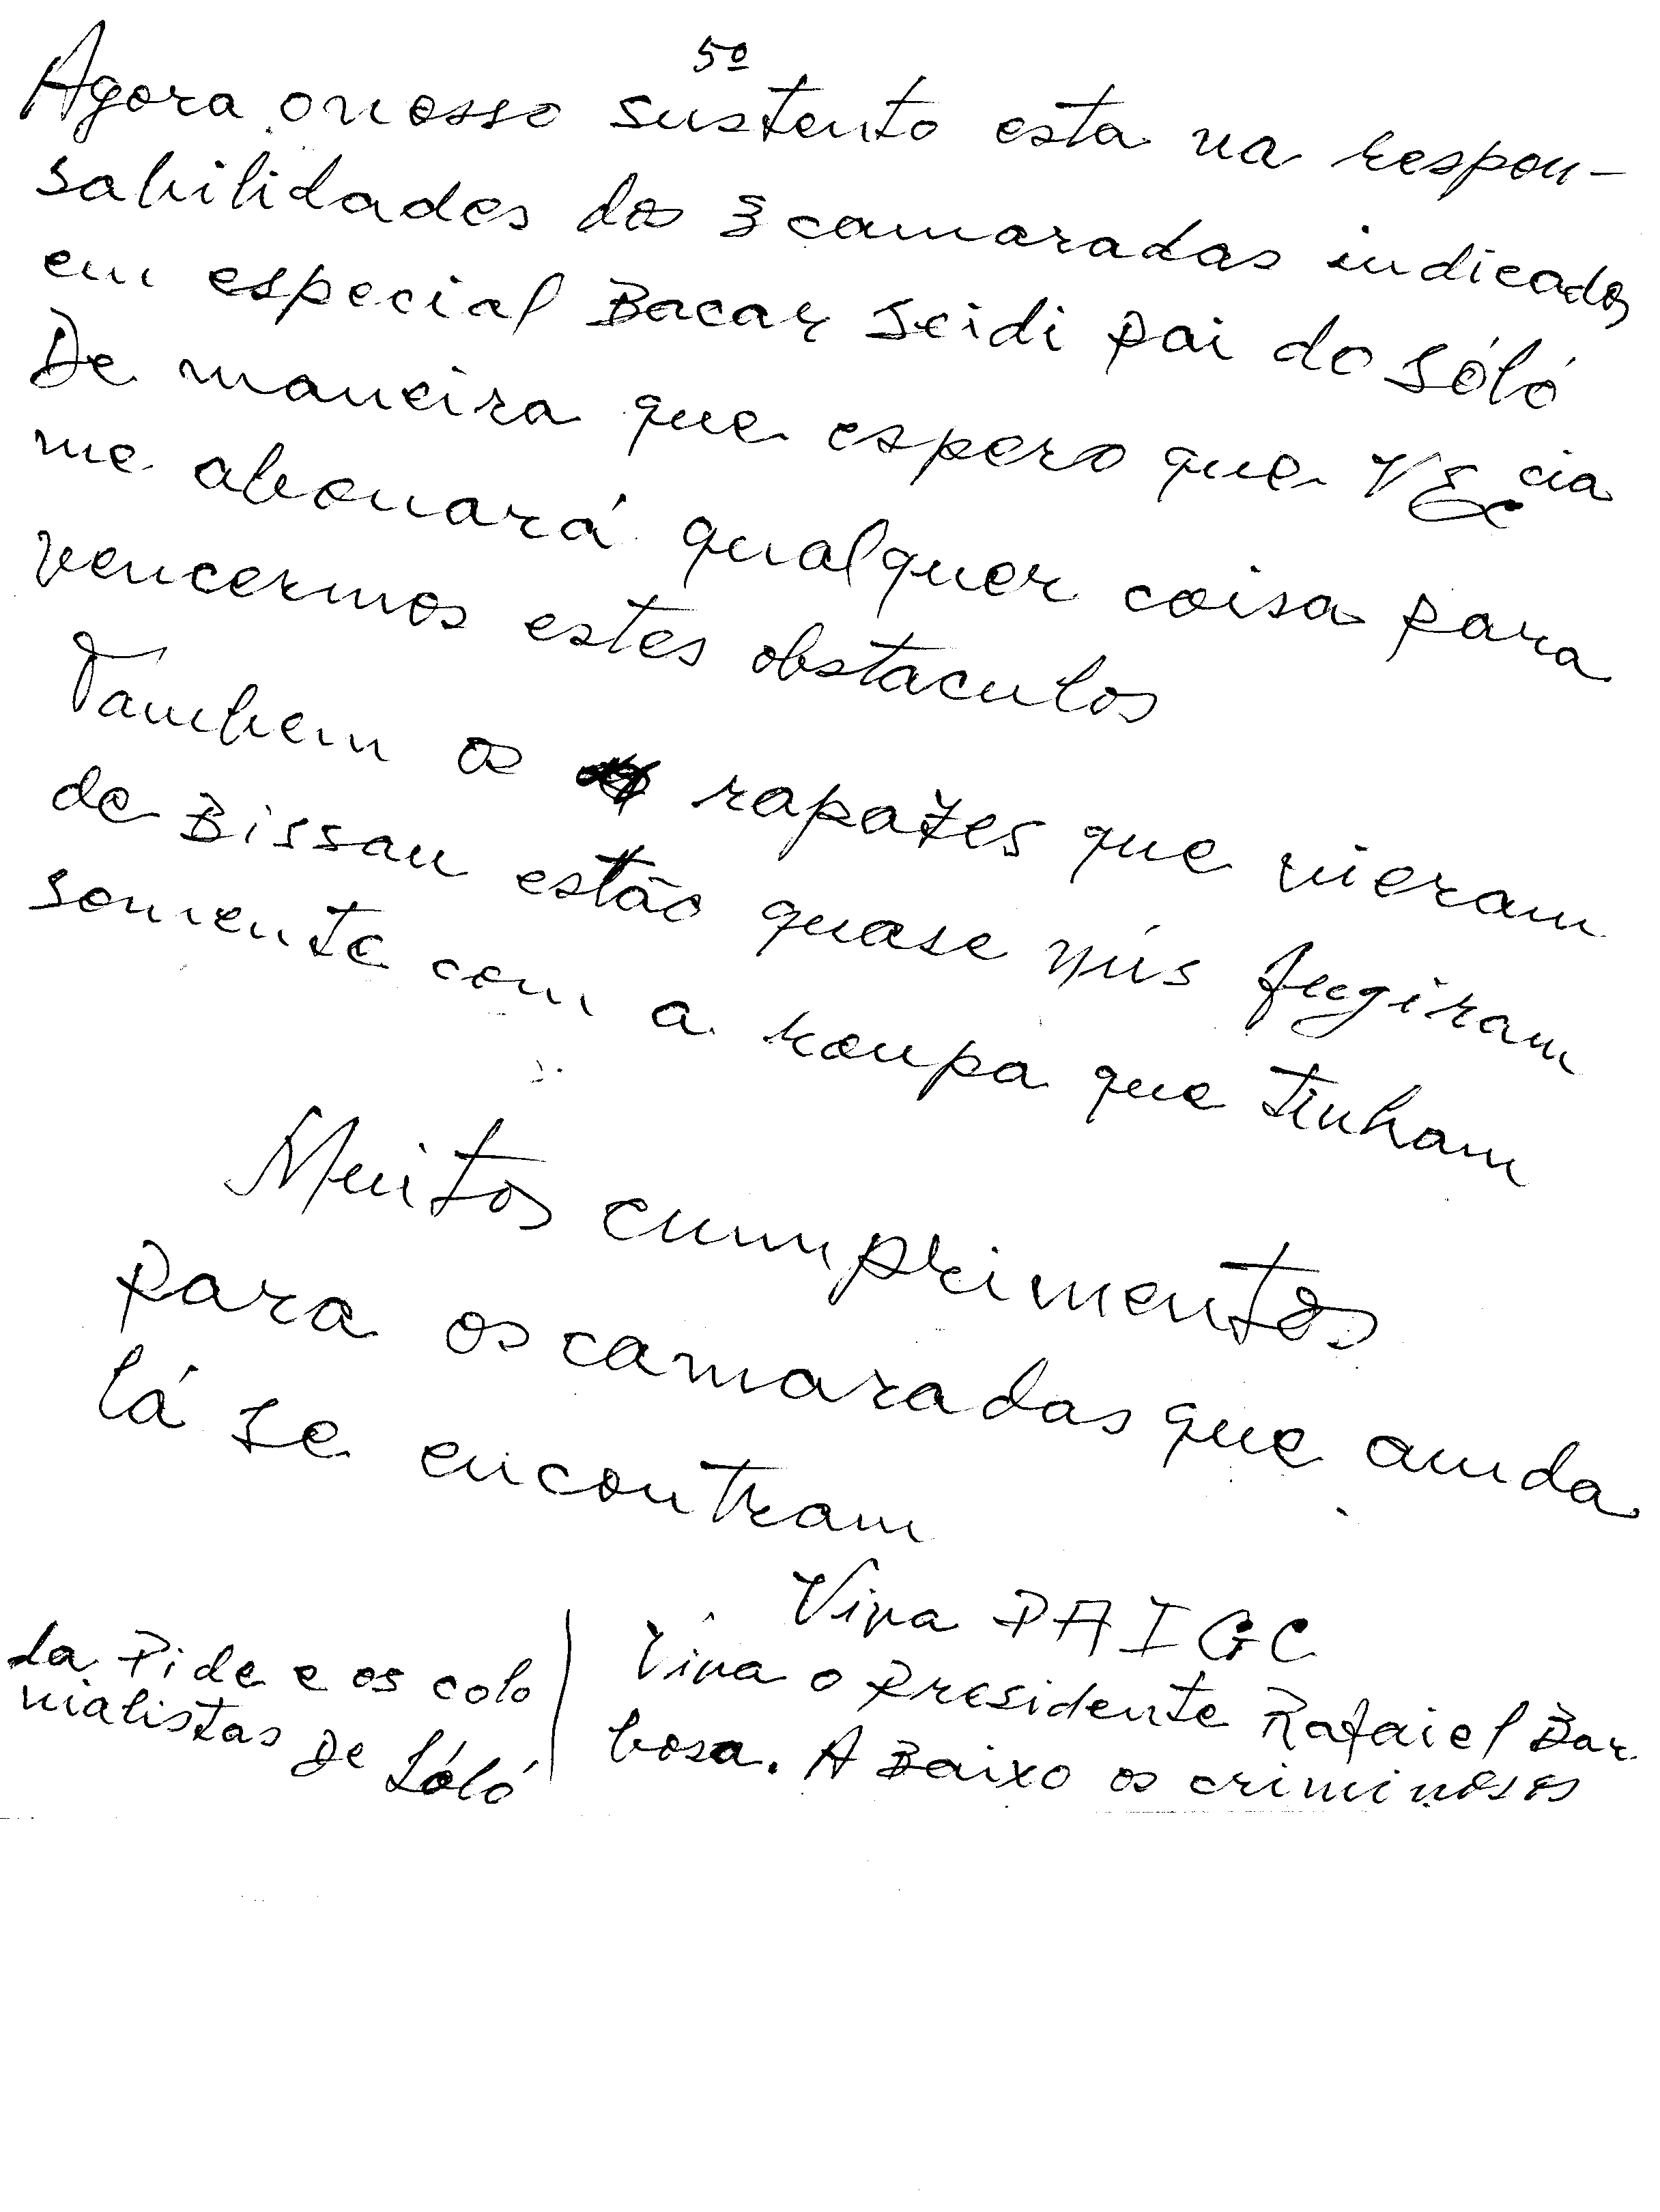 5º
Agora o nosso sustento esta na respon-
sabilidades dos 3 camaradas indicados
em especial Bacar Seidi pai do Sóló
De maneira que espero que V Excia
me abonará qualquer coisa para
vencermos estes obstaculos
Tambem os rapazes que vieram
de Bissau estão quase nús fugiram
somente com a roupa que tinham
Muitos cumprimentos
para os camaradas que ainda
lá se encontram
Viva PAIGC
Viva o presidente Rafaiel Bar
bosa. A Baixo os criminosos
da Pide e os colo
nialistas De Sóló